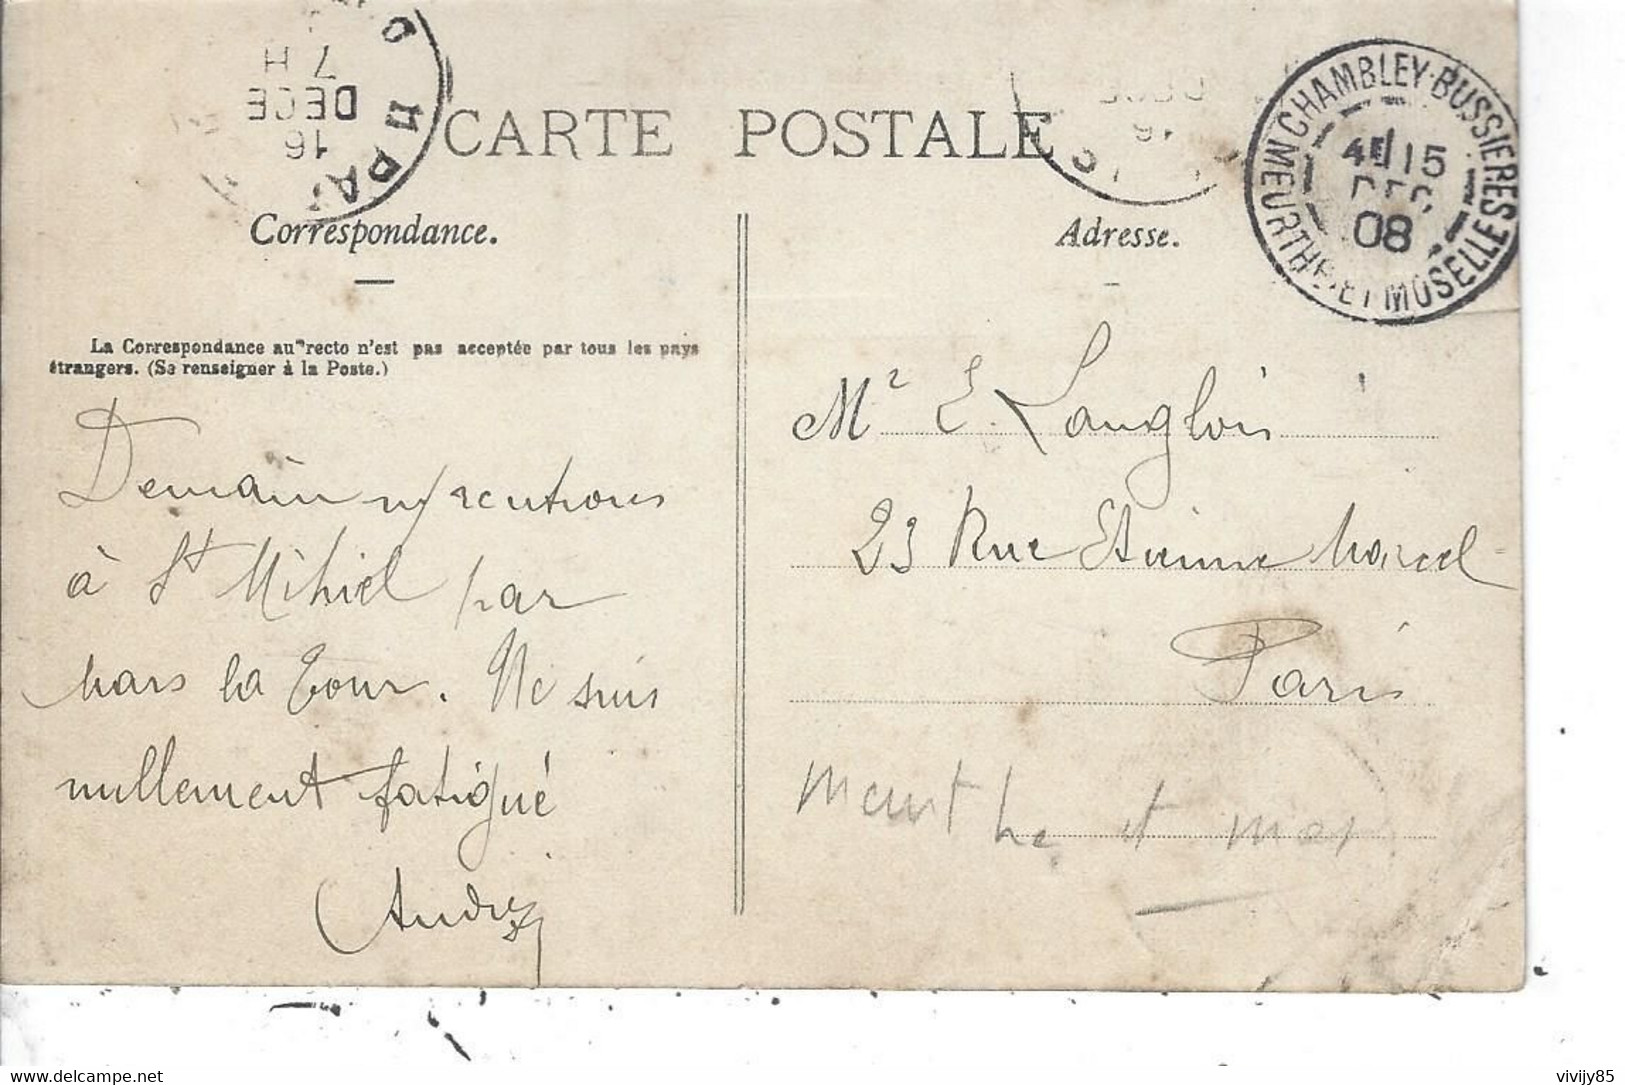 CARTE POSTALE
Correspondance.
La Correspondance au recto n'est pas acceptée par tous les pays
étrangers. (Se renseigner à la Poste.)
Demain
à St Mihiel par
Mars la Tour. Ne suis
nullement fatigué
André
Adresse.
Mr E. Langlois
23 Rue Etienne Marcel
Paris
Meurthe et mos
CHAMBLEY-BUSSIERES
MEURTHE-ET-MOSELLE
15
DEC
08
7 H
DECE
16
16
DECE
delcampe.net
vivijy85